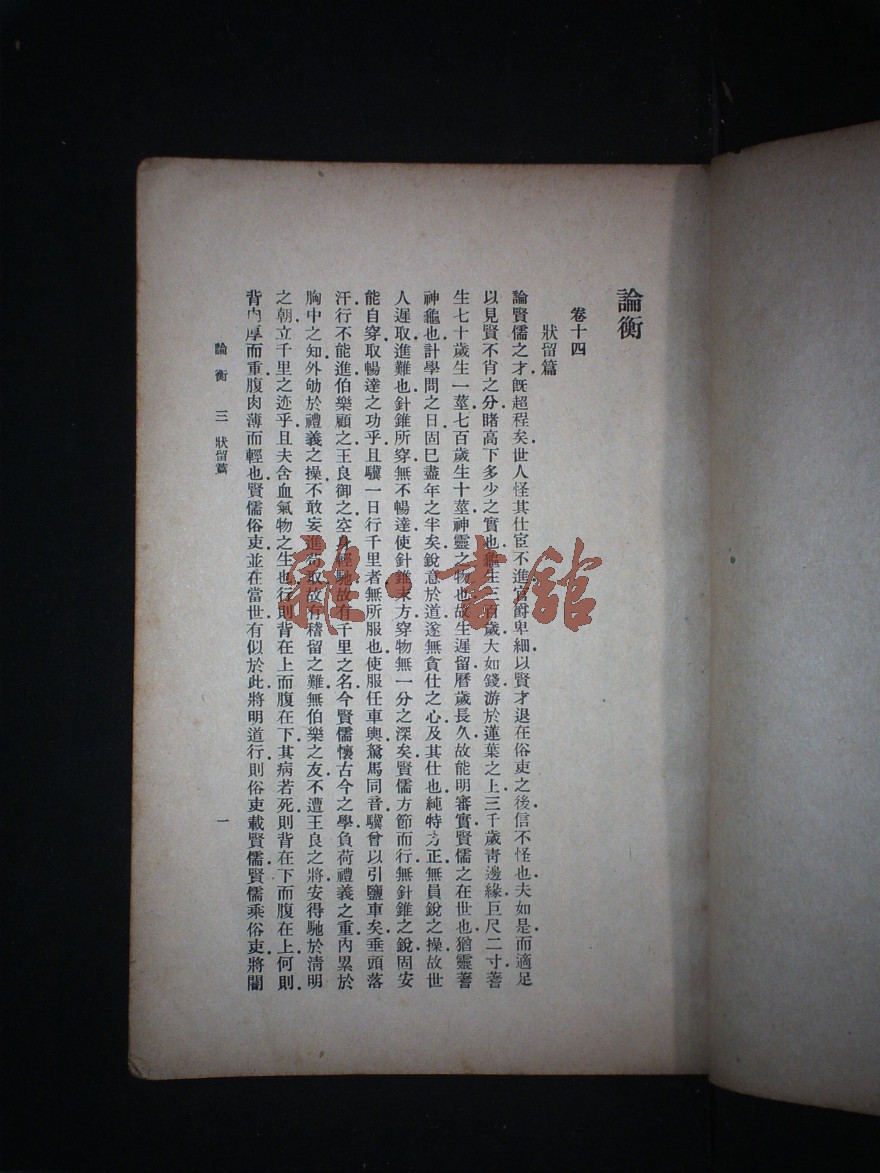 論衡
卷十四
狀留篇
論賢儒之才既超程矣世人怪其仕宦不進官爵卑細以賢才退在俗吏之後信不怪也夫如是而適足
以見賢不肖之分睹高下多少之實也龜生三百歲大如錢游於蓮葉之上三千歲青邊緣巨尺二寸蓍
生七十歲生一莖七百歲生十莖神靈之物也故生遲留曆歲長久故能明審實賢儒之在世也猶靈蓍
神龜也計學問之日固已盡年之半矣銳意於道遂無貪仕之心及其仕也純特方正無員銳之操故世
人遲取進難也針錐所穿無不暢達使針錐末方穿物無一分之深矣賢儒方節而行無針錐之銳固安
能自穿取暢達之功乎且驥一日行千里者無所服也使服任車輿駑馬同音驥曾以引鹽車矣垂頭落
汗行不能進伯樂顧之王良御之空身輕馳故有千里之名今賢儒懷古今之學負荷禮義之重內累於
胸中之知外劬於禮義之操不敢妄進苟取故有稽留之難無伯樂之友不遭王良之將安得馳於清明
之朝立千里之迹乎且夫含血氣物之生也行則背在上而腹在下其病若死則背在下而腹在上何則
背肉厚而重腹肉薄而輕也賢儒俗吏並在當世有似於此將明道行則俗吏載賢儒賢儒乘俗吏將闇
論衡 三 狀留篇 一
雜·書館